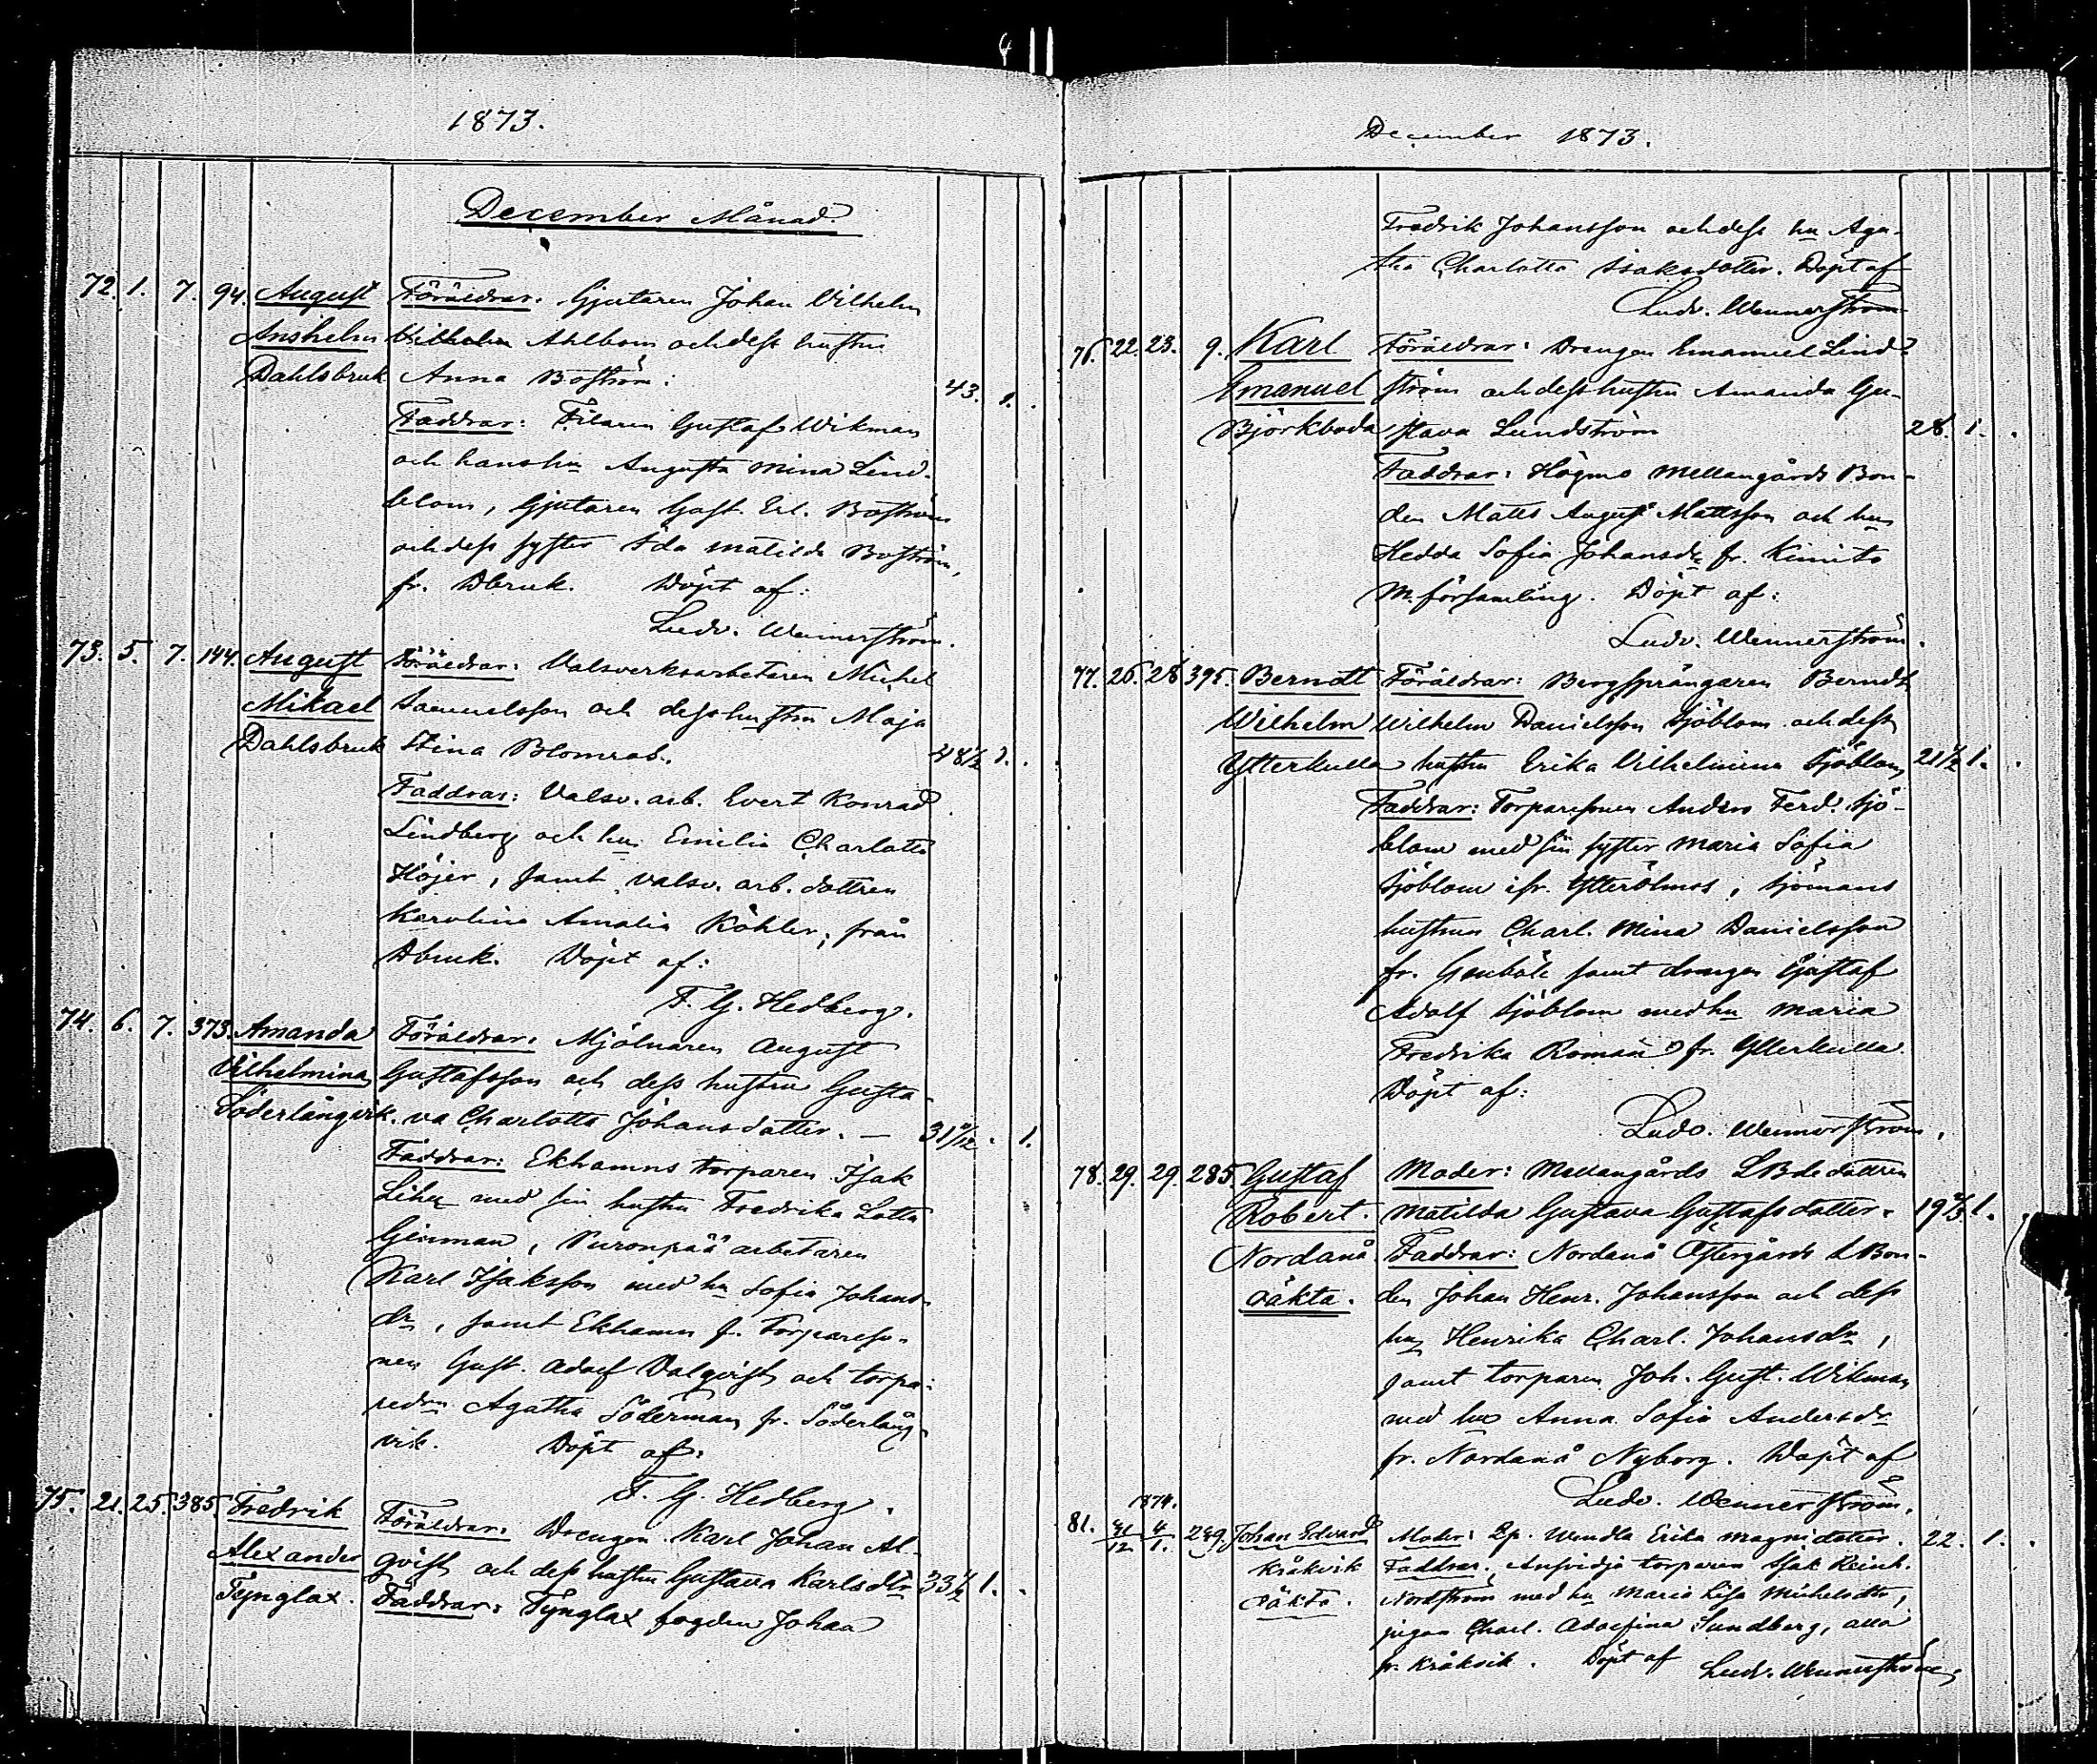 1873.
December Månad.
72. 1. 7. 94. August Föräldrar: Gjutaren Johan Vilhelm
Anshelm Vilhelm Ahlbom och dess hustru
Dahlsbruk Anna Boström: 43. 1.
Faddrar: Filaren Gustaf Wikman
och hans hu Augusta Mina Lind-
blom, Gjutaren Gust. Boström
och dess syster Ida Matilda Boström,
fr. Dbruk. Döpt af:
Ludv. Wennerström.
73. 5. 7. 144. August Föräldrar: Valsverksarbetaren Michel
Mikael Samuelsson och dess hustru Maja
Dahlsbruk Stina Blomrot. 28½ 1.
Faddrar: Valsv. arb. Evert Konrad
Lindberg och hu Emilia Charlotta
Höjer, samt valsv. arb. dottren
Karolina Amalia Köhler, från
Dbruk. Döpt af:
F. G. Hedberg.
74. 6. 7. 373. Amanda Föräldrar: Mjölnaren August
Vilhelmina Gustafsson och dess hustru Gusta-
Söderlångvik. va Charlotta Johansdotter. — 31 1.
Faddrar: Ekhamns torparen Isak
med sin hustru Fredrika Lotta
Ginman, Puronpää arbetaren
Karl Isaksson med hu Sofia Johans-
dr, samt Ekhamn f. Torpareso-
nen Gust. Adolf Dalqvist och torpa-
redrn Agatha Söderman fr. Söderlång-
vik. Döpt af:
F. G. Hedberg.
75. 21. 25. 385. Fredrik Föräldrar: Drengen Karl Johan Al-
Alexander qvist och dess hustru Gustava Karlsdtr 33½ 1.
Tynglax. Faddrar: Tynglax fogden Johan
December 1873.
Fredrik Johansson och dess hu Aga-
tha Charlotta Isaksdotter. Döpt af
Ludv. Wennerström
76. 22. 23. 9. Karl Föräldrar: Drengen Emanuel Lind-
Emanuel ström och dess hustru Amanda Gu-
Björkboda stava Lundström 28. 1.
Faddrar: Högmo Mellangårds Bon-
den Matts August Mattsson och hu
Hedda Sofia Johansdr fr. Kimito
M. församling. Döpt af:
Ludv. Wennerström.
77. 26. 28. 395. Berndt Föräldrar: Bergsprängaren Berndt
Wilhelm Wilhelm Danielsson Sjöblom och dess
Ytterkulla hustru Erika Vilhelmina Sjöblom 21½ 1.
Faddrar: Torparesonen Anders Ferd. Sjö-
blom med sin syster Maria Sofia
Sjöblom ifr. Ytterölmos, Sjömans
hustrun Charl. Mina Danielsson
fr. Genböle samt drengen Gustaf
Adolf Sjöblom med hu Maria
Fredrika Roman fr. Ytterkulla.
Döpt af:
Ludv. Wennerström.
78. 29. 29. 285. Gustaf Moder: Mellangårds LBdedottren
Robert. Matilda Gustava Gustafsdotter. 19 1.
Nordanå Faddrar: Nordanå Östergårds LBon-
oäkta. den Johan Henr. Johansson och dess
hu Henrika Charl. Johansdr,
samt torparen Joh. Gust. Wikman
med hu Anna Sofia Andersdr
fr. Nordanå Nyborg. Döpt af
Ludv. Wennerström.
1874.
81. 31/12 4/1. 289. Johan Edvard Moder: Pp. Wendla Erika Magnidotter. 22. 1.
Kråkvik Faddrar: torparen Isak Reinh.
oäkta. Nordström med hu Maria Lisa Michelsdtr,
pigan Charl. Adolfina Sundberg, alla
fr. Kråkvik. Döpt af Ludv. Wennerström